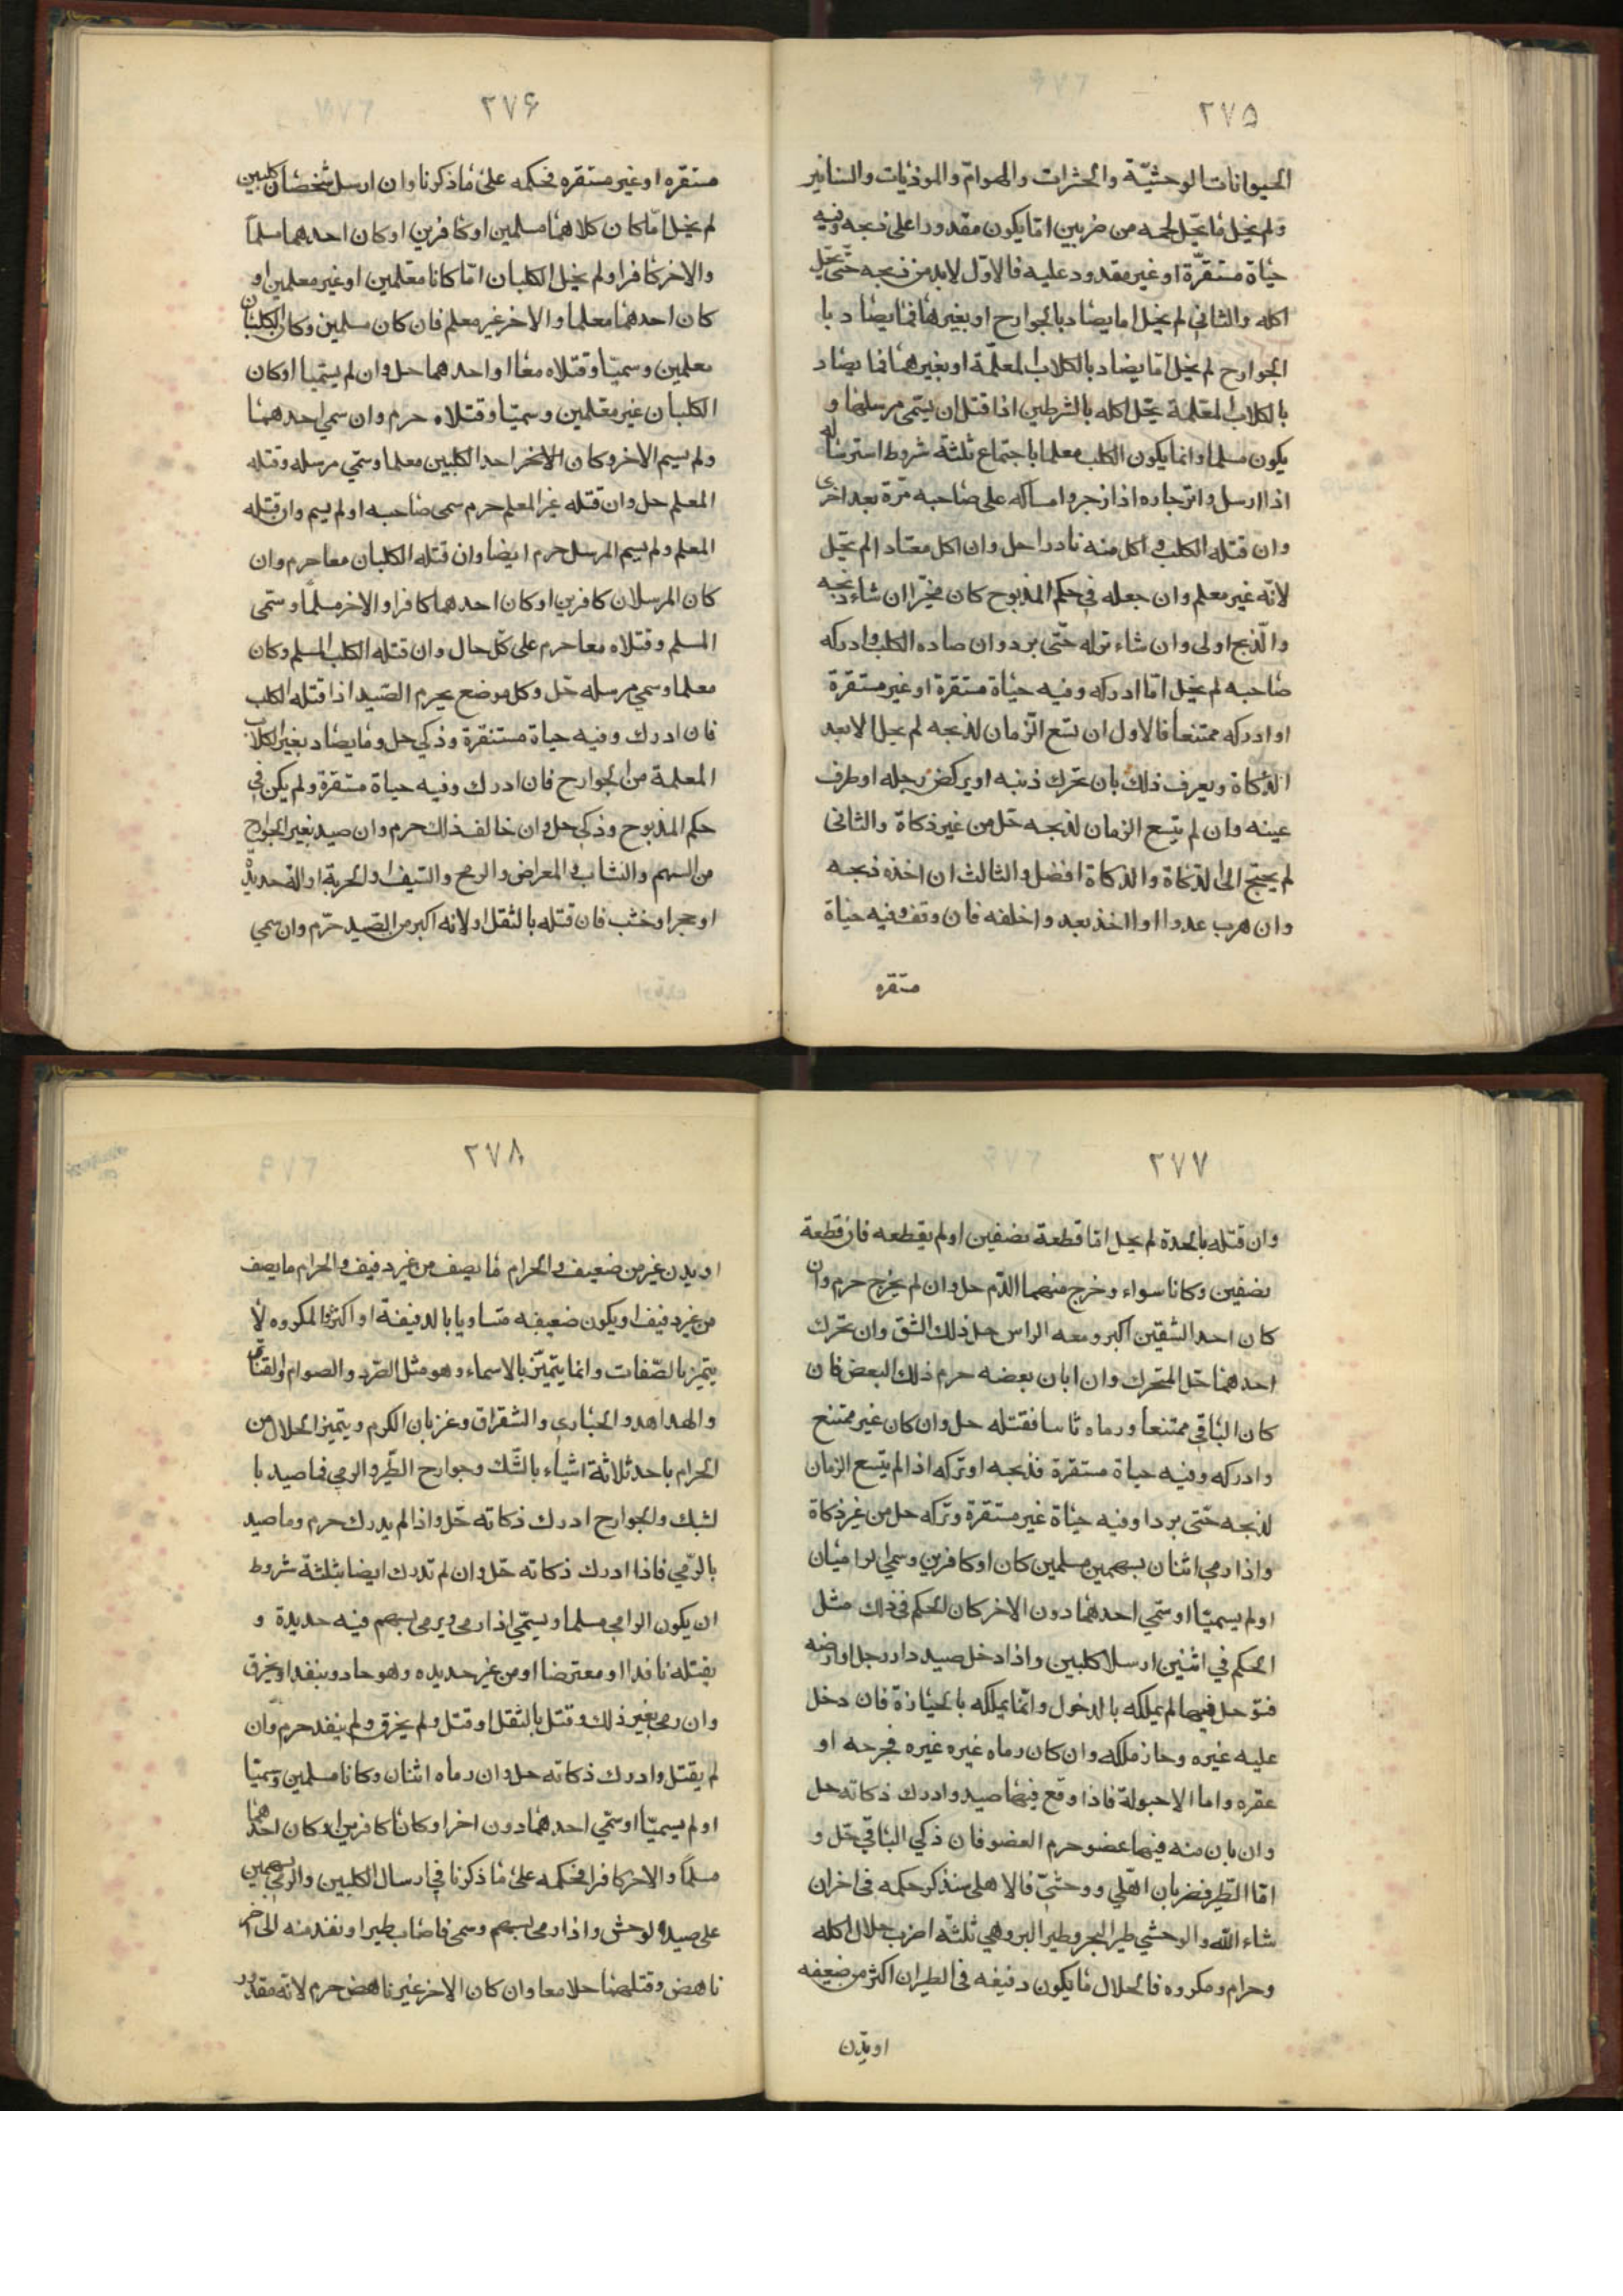 ٢٧٥
الحيوانات الوحشيّة والحشرات والهوامّ والموذيات والسنانير
ولم يخل ما يحلّ لحمه من ضربين امّا يكون مقدورا على ذبحه وفيه
حياة مستقرّة او غير مقدور عليه فالاوّل لابد من ذبحه حتّى يحلّ
اكله والثاني لم يخل اما يصاد بالجوارح او بغيرها فما يصاد با
الجوارح لم يخل امّا يصاد بالكلاب المعلّمة او بغيرهما فما يصاد
بالكلاب المعلمة يحّل اكله بالشرطين اذا قتل ان يسّمى مرسلها و
يكون مسلما وانما يكون الكلب معلما باجتماع ثلثة شروط استرساله
اذا ارسل وانزجاره اذا زجر وامساكه على صاحبه مرّة بعد اخرى
وان قتله الكلب و اكل منه نادرا حل وان اكل معتادا لم يحّل
لانّه غير معلم وان جعله في حكم المذبوح كان مخيّرا ان شاء ذبحه
والّذبح اولى وان شاء تركه حّتى برد وان صاده الكلب وادركه
صاحبه لم يخل امّا ادركه وفيه حياة مستقرة او غير مستقرة
او ادركه ممتنعا فالاول ان تسّع الزّمان لذبحه لم يحل الا بعد
الذكاة ويعرف ذلك بان تحرك ذنبه او يركض رجله او طرف
عينه وان لم يتّسع الزمان لذبحه حّل من غير ذكاة والثانى
لم يحتج الى الذكاة والذكاة افضل والثالث ان اخذه ذبحه
وان هرب عدوا او اخذ بعد واخلفه فان وقف وفيه حياة
مستقره
٢٧۶
مستقره او غير مستقره فحكمه على ما ذكرنا وان ارسل شخصان كلبين
لم يخل امّا كان كلاهما مسلمين او كافرين او كان احدهما مسلماً
والاخر كافرا ولم يخل الكلبان امّا كانا معّلمين او غير معلمين او
كان احدهما معلما والاخر غير معلم فان كان مسلمين وكان الكلبان
معلمين وسميّا وقتلاه معا او احدهما حل وان لم يسّميا او كان
الكلبان غير معّلمين وسميّا وقتلاه حرم وان سمي احدهما
ولم يسم الاخر وكان الاخر احد الكلبين معلما وسمّي مرسله وقتله
المعلم حل وان قتله غير المعلم حرم سمى صاحبه او لم يسم وان قتله
المعلم ولم يسم المرسل حرم ايضا وان قتله الكلبان معا حرم وان
كان المرسلان كافرين او كان احدهما كافرا والاخر مسلماً وسّمى
المسلم وقتلاه معا حرم على كّل حال وان قتله الكلب المسلم وكان
معلما وسمي مرسله حّل وكل موضع يحرم الصّيد اذا قتله الكلب
فان ادرك وفيه حياة مستنقرة وذكي حل وما يصاد بغير الكلاب
المعلمة من الجوارح فان ادرك وفيه حياة مستقرة ولم يكن في
حكم المذبوح وذكي حل وان خالف ذلك حرم وان صيد بغير الجوارح
من السهم والنشاب و المعراض والرمح والسّيف والحربة او الة حديدة
او حجر او خشب فان قتله بالثقل او لانه اكبر من الصّيد حرّم وان سمي
٢٧٧
وان قتله بالحدة لم يخل امّا قطعة نصفين او لم يقطعه فان قطعة
نصفين وكانا سواء وخرج منهما الدّم حل وان لم يخرج حرم وان
كان احد الشقين اكبر ومعه الراس حل ذلك الشق وان تحّرك
احدهما حّل المتحرك وان ابان بعضه حرم ذلك البعض فان
كان الباقي ممتنعا ورماه ثانيا فقتله حل وان كان غير ممتنع
وادركه وفيه حياة مستقرة فذبحه او تركه اذا لم يتّسع الزمان
لذبحه حّتى برد او فيه حياة غير مستقرة وتركه حل من غير ذكاة
واذا رمي اثنان بسهمين مسلمين كان او كافرين وسمي الراميان
او لم يسميّا او سمّي احدهما دون الاخر كان الحكم في ذلك مثل
الحكم في اثنين ارسلا كلبين واذا دخل صيد دار رجل او ارضه
فتوّحل فيها لم يملكه بالدخول وانّما يملكه بالحيازة فان دخل
عليه غيره وحاز ملكه وان كان رماه غيره غيره فجرحه او
عقره واما الاحبولة فاذا وقع فيها صيد وادرك ذكاته حل
وان بان منه فيها عضو حرم العضو فان ذكي الباقي حّل و
امّا الطّير فضربان اهّلي ووحشيّ فالاهلي سنذكر حكمه في اخر ان
شاء اللّه والوحشي طير البحر وطير البر وهي ثلثة اضرب حلال اكله
وحرام ومكروه فالحلال ما يكون دفيفه في الطيران اكثر من صفيفه
او يدّن
٢٧٨
او يدن غير من ضعيف والحرام ما يصف من غير دفيف والحرام ما يصف
من غير دفيف او يكون ضعيفه متساويا بالدفيفة او اكثر والمكروه لا
يتميز بالصّفات وانما يتميّز بالاسماء وهو مثل الصّرد والصوام والقنابر
والهداهد والحبارى والشقراق وغزبان الكرم ويتميز الحلال من
الحرام باحد ثلاثة اشياء بالشّك وجوارح الطّير والرمي فما صيد با
لشبك والجوارح ادرك ذكاته حّل واذا لم يدرك حرم وما صيد
بالرّمي فاذا ادرك ذكاته حّل وان لم تدرك ايضا بثلثة شروط
ان يكون الرامي مسلما ويسمّي اذا رمى ويرمى بسهم فيه حديدة و
يقتله نافدا او معترضا او من غير حديده وهو حاد و ينفد او يخرق
وان رمى بغير ذلك وقتل بالثقل او قتل ولم يخرق ولم ينفد حرم وان
لم يقتل وادرك ذكاته حل وان رماه اثنان وكانا مسلمين وسميّا
او لم يسميّا او سمّي احدهما دون اخر او كانا كافرين او كان احدهما
مسلماً والاخر كافرا فحكمه على ما ذكرنا في ارسال الكلبين والرمي بسهمين
على صيد الوحش واذا رمى بسهم وسمى فاصاب طيرا ونفذ منه الى اخر
ناهض وقتلهما حلا معا وان كان الاخر غير ناهض حرم لانّه مقدور